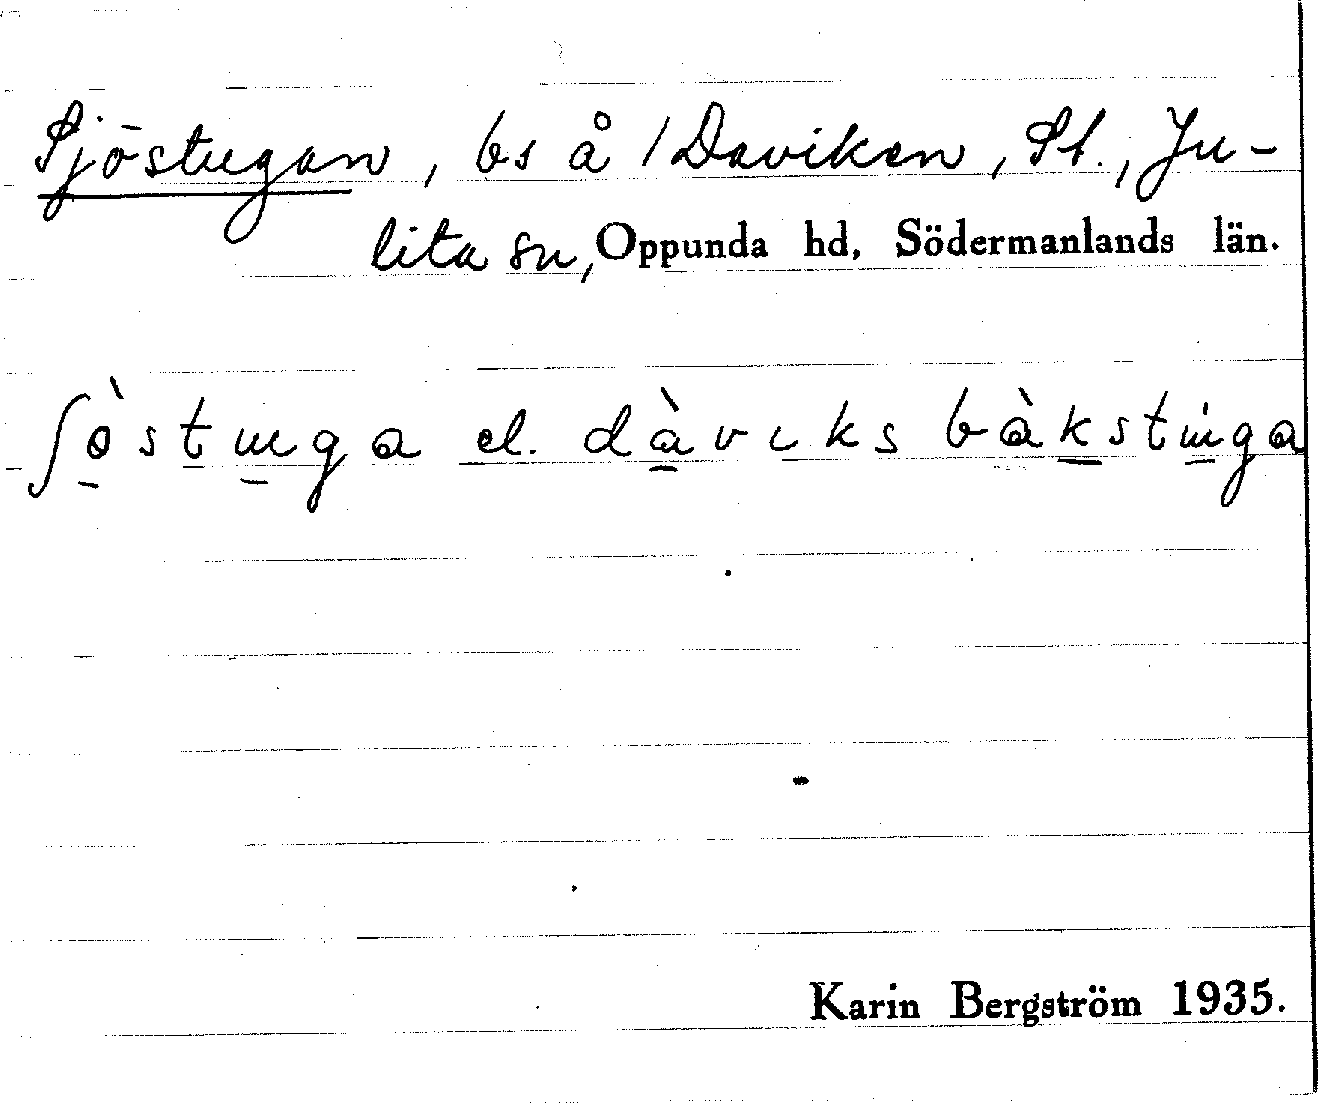 Sjöstugan, bs å 1 Daviken, St., Ju-
lita sn, Oppunda hd, Södermanlands län.
ʃòstuga el. dàviks bàkstuga
Karin Bergström 1935.